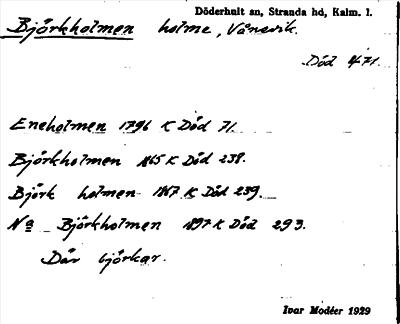 Döderhult sn, Stranda hd, Kalm. l.
Björkholmen holme, Vånevik.
Död 4:71.
Eneholmen 1796 K Död 71.
Björkholmen 1865 K Död 238.
Björk holmen 1867 K Död 239.
Na Björkholmen 1897 K Död 293.
Där björkar.
Ivar Modéer 1929